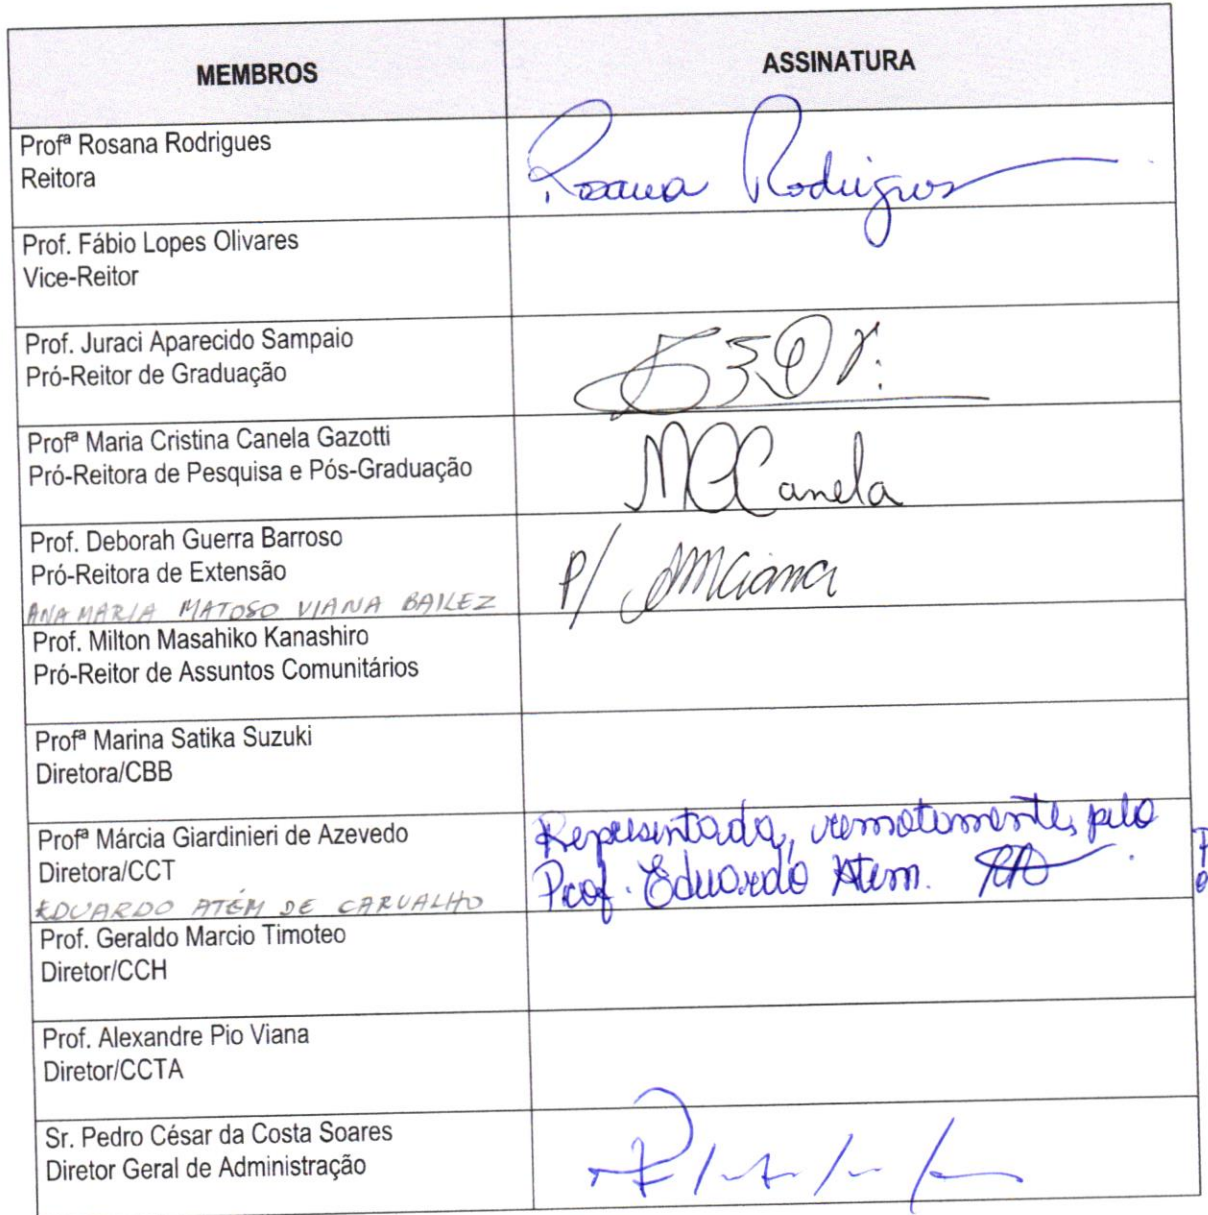 MEMBROS
ASSINATURA
Profª Rosana Rodrigues
Reitora
Rosana Rodrigues
Prof. Fábio Lopes Olivares
Vice-Reitor
Prof. Juraci Aparecido Sampaio
Pró-Reitor de Graduação
Profª Maria Cristina Canela Gazotti
Pró-Reitora de Pesquisa e Pós-Graduação
MCCanela
Prof. Deborah Guerra Barroso
Pró-Reitora de Extensão
ANA MARIA MATOSO VIANA BAILEZ
P/
Prof. Milton Masahiko Kanashiro
Pró-Reitor de Assuntos Comunitários
Profª Marina Satika Suzuki
Diretora/CBB
Profª Márcia Giardinieri de Azevedo
Diretora/CCT
EDUARDO ATÉM DE CARVALHO
Representada, remotamente, pelo
Prof. Eduardo Atem.
Prof. Geraldo Marcio Timoteo
Diretor/CCH
Prof. Alexandre Pio Viana
Diretor/CCTA
Sr. Pedro César da Costa Soares
Diretor Geral de Administração